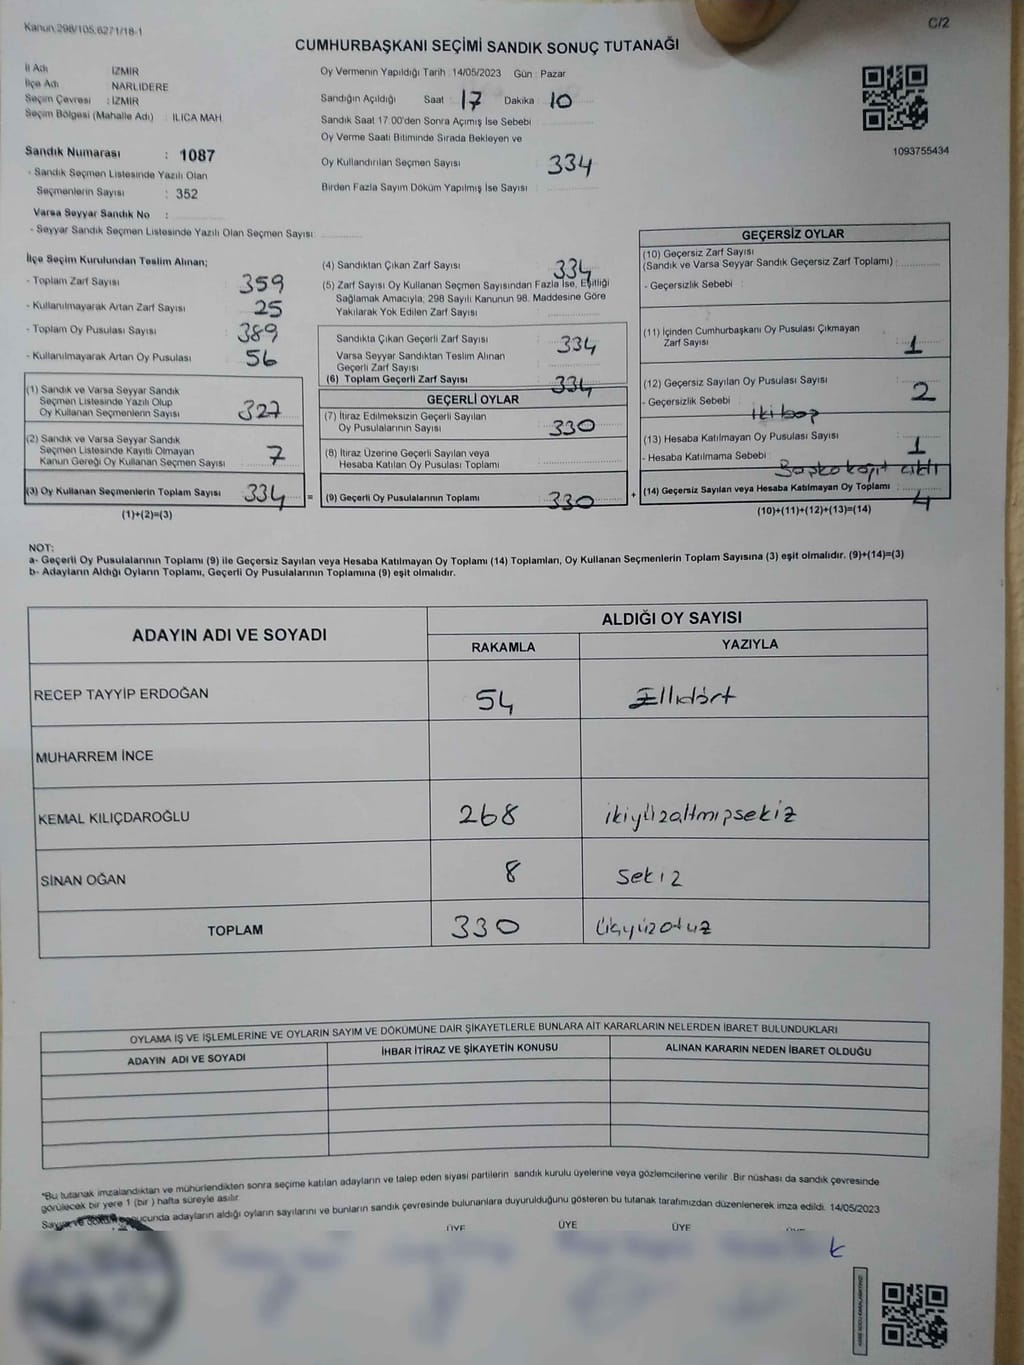 Kanun.298/105,6271/18-1
C/2
CUMHURBAŞKANI SEÇİMİ SANDIK SONUÇ TUTANAĞI
İl Adı İZMİR
İlçe Adı NARLIDERE
Seçim Çevresi : İZMİR
Seçim Bölgesi (Mahalle Adı) : ILICA MAH
Sandık Numarası : 1087
- Sandık Seçmen Listesinde Yazılı Olan
Seçmenlerin Sayısı : 352
Varsa Seyyar Sandık No :
- Seyyar Sandık Seçmen Listesinde Yazılı Olan Seçmen Sayısı:
Oy Vermenin Yapıldığı Tarih : 14/05/2023 Gün : Pazar
Sandığın Açıldığı Saat : 17 Dakika : 10
Sandık Saat 17:00'den Sonra Açımış İse Sebebi :
Oy Verme Saati Bitiminde Sırada Bekleyen ve
Oy Kullandırılan Seçmen Sayısı : 334
Birden Fazla Sayım Döküm Yapılmış İse Sayısı :
1093755434
İlçe Seçim Kurulundan Teslim Alınan;
- Toplam Zarf Sayısı : 359
- Kullanılmayarak Artan Zarf Sayısı : 25
- Toplam Oy Pusulası Sayısı : 389
- Kullanılmayarak Artan Oy Pusulası : 56
(1) Sandık ve Varsa Seyyar Sandık
Seçmen Listesinde Yazılı Olup
Oy Kullanan Seçmenlerin Sayısı : 327
(2) Sandık ve Varsa Seyyar Sandık
Seçmen Listesinde Kayıtlı Olmayan
Kanun Gereği Oy Kullanan Seçmen Sayısı : 7
(3) Oy Kullanan Seçmenlerin Toplam Sayısı : 334 =
(1)+(2)=(3)
(4) Sandıktan Çıkan Zarf Sayısı : 334
(5) Zarf Sayısı Oy Kullanan Seçmen Sayısından Fazla İse, Eşitliği
Sağlamak Amacıyla; 298 Sayılı Kanunun 98. Maddesine Göre
Yakılarak Yok Edilen Zarf Sayısı :
Sandıkta Çıkan Geçerli Zarf Sayısı : 334
Varsa Seyyar Sandıktan Teslim Alınan
Geçerli Zarf Sayısı :
(6) Toplam Geçerli Zarf Sayısı : 334
GEÇERLİ OYLAR
(7) İtiraz Edilmeksizin Geçerli Sayılan
Oy Pusulalarının Sayısı : 330
(8) İtiraz Üzerine Geçerli Sayılan veya
Hesaba Katılan Oy Pusulası Toplamı :
(9) Geçerli Oy Pusulalarının Toplamı : 330 +
GEÇERSİZ OYLAR
(10) Geçersiz Zarf Sayısı
(Sandık ve Varsa Seyyar Sandık Geçersiz Zarf Toplamı) :
- Geçersizlik Sebebi :
(11) İçinden Cumhurbaşkanı Oy Pusulası Çıkmayan
Zarf Sayısı : 1
(12) Geçersiz Sayılan Oy Pusulası Sayısı : 2
- Geçersizlik Sebebi :
(13) Hesaba Katılmayan Oy Pusulası Sayısı : 1
- Hesaba Katılmama Sebebi : Başka kağıt çıktı
(14) Geçersiz Sayılan veya Hesaba Katılmayan Oy Toplamı : 4
(10)+(11)+(12)+(13)=(14)
NOT:
a- Geçerli Oy Pusulalarının Toplamı (9) ile Geçersiz Sayılan veya Hesaba Katılmayan Oy Toplamı (14) Toplamları, Oy Kullanan Seçmenlerin Toplam Sayısına (3) eşit olmalıdır. (9)+(14)=(3)
b- Adayların Aldığı Oyların Toplamı, Geçerli Oy Pusulalarının Toplamına (9) eşit olmalıdır.
ADAYIN ADI VE SOYADI ALDIĞI OY SAYISI
RAKAMLA YAZIYLA
RECEP TAYYİP ERDOĞAN 54 Ellidört
MUHARREM İNCE
KEMAL KILIÇDAROĞLU 268 ikiyüzaltmışsekiz
SİNAN OĞAN 8 Sekiz
TOPLAM 330 Üçyüzotuz
OYLAMA İŞ VE İŞLEMLERİNE VE OYLARIN SAYIM VE DÖKÜMÜNE DAİR ŞİKAYETLERLE BUNLARA AİT KARARLARIN NELERDEN İBARET BULUNDUKLARI
ADAYIN ADI VE SOYADI İHBAR İTİRAZ VE ŞİKAYETİN KONUSU ALINAN KARARIN NEDEN İBARET OLDUĞU
*Bu tutanak imzalandıktan ve mühürlendikten sonra seçime katılan adayların ve talep eden siyasi partilerin sandık kurulu üyelerine veya gözlemcilerine verilir. Bir nüshası da sandık çevresinde
görülecek bir yere 1 (bir ) hafta süreyle asılır.
Sayım ve döküm sonucunda adayların aldığı oyların sayılarını ve bunların sandık çevresinde bulunanlara duyurulduğunu gösteren bu tutanak tarafımızdan düzenlenerek imza edildi. 14/05/2023
ÜYE ÜYE ÜYE